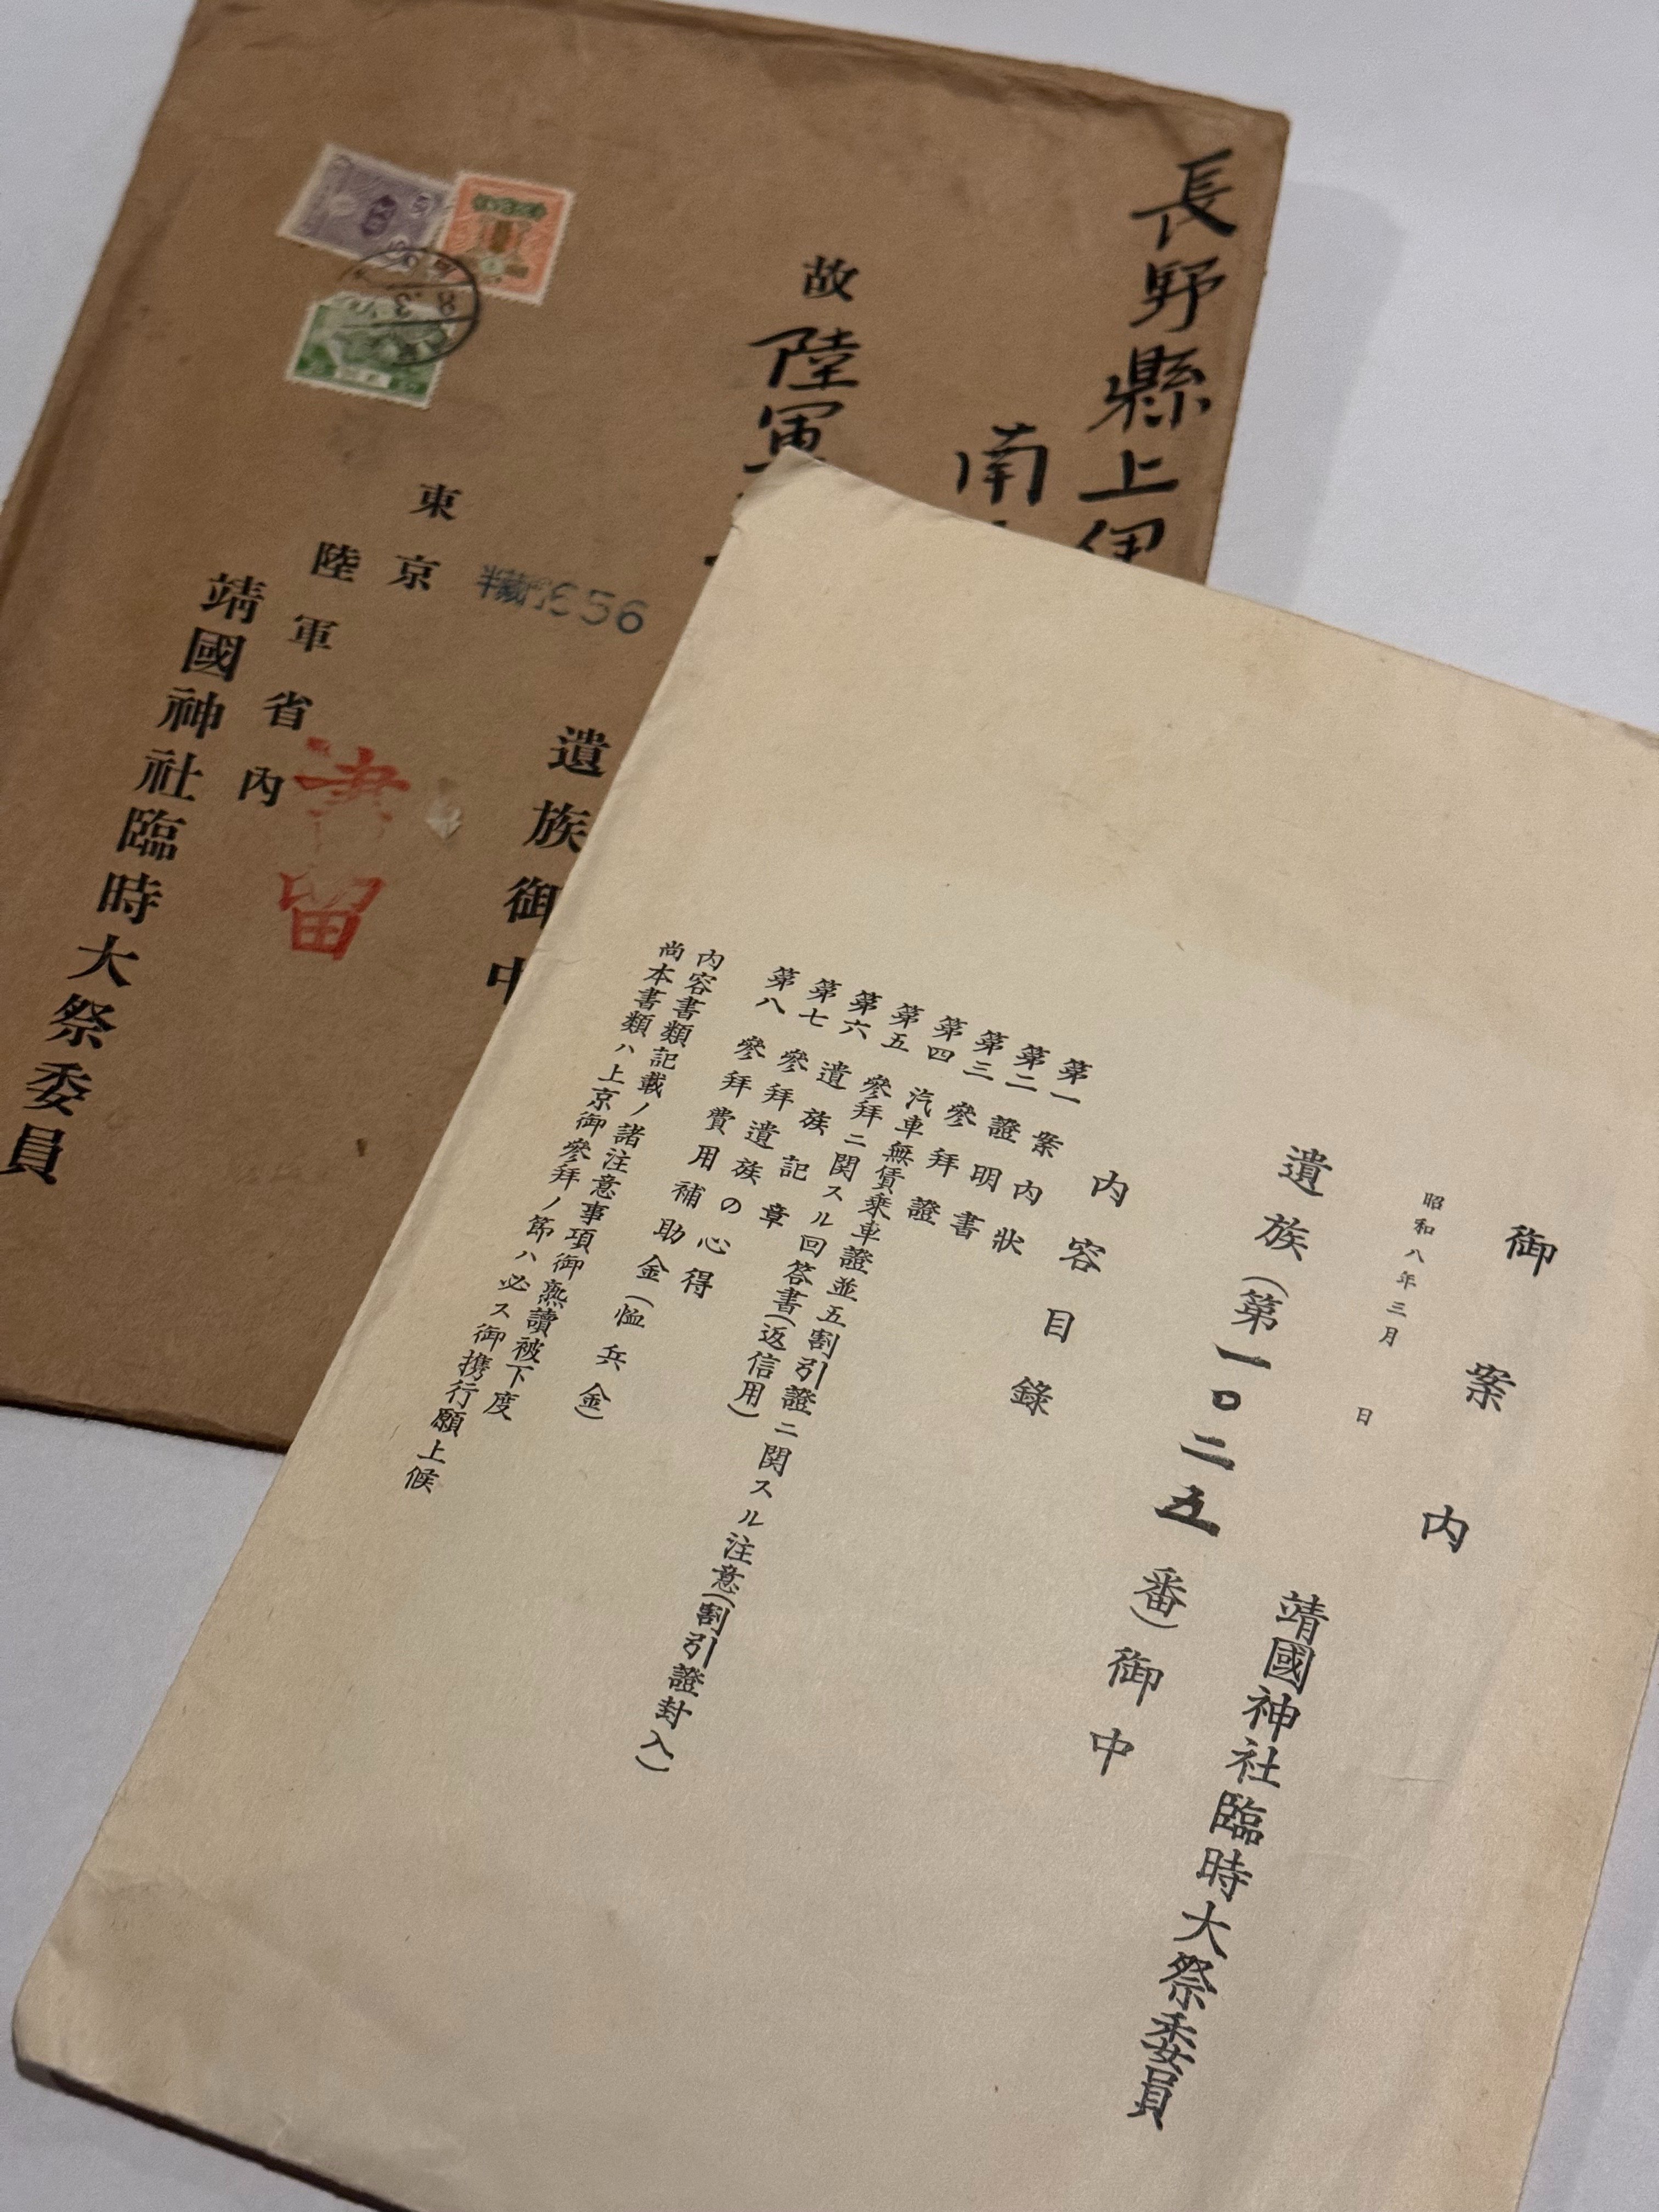 長野縣上伊
南
故 陸軍
遺族御中
半蔵門 656
東京
陸軍省内
靖國神社臨時大祭委員
書留
御案内
昭和八年三月 日
靖國神社臨時大祭委員
遺族(第一〇二五番)御中
内容目錄
第一 案内狀
第二 證明書
第三 參拜證
第四 汽車無賃乘車證並五割引證ニ関スル注意(割引證封入)
第五 參拜ニ関スル回答書(返信用)
第六 遺族記章
第七 參拜遺族の心得
第八 參拜費用補助金(恤兵金)
内容書類記載ノ諸注意事項御熟讀被下度
尚本書類ハ上京御參拜ノ節ハ必ス御携行願上候